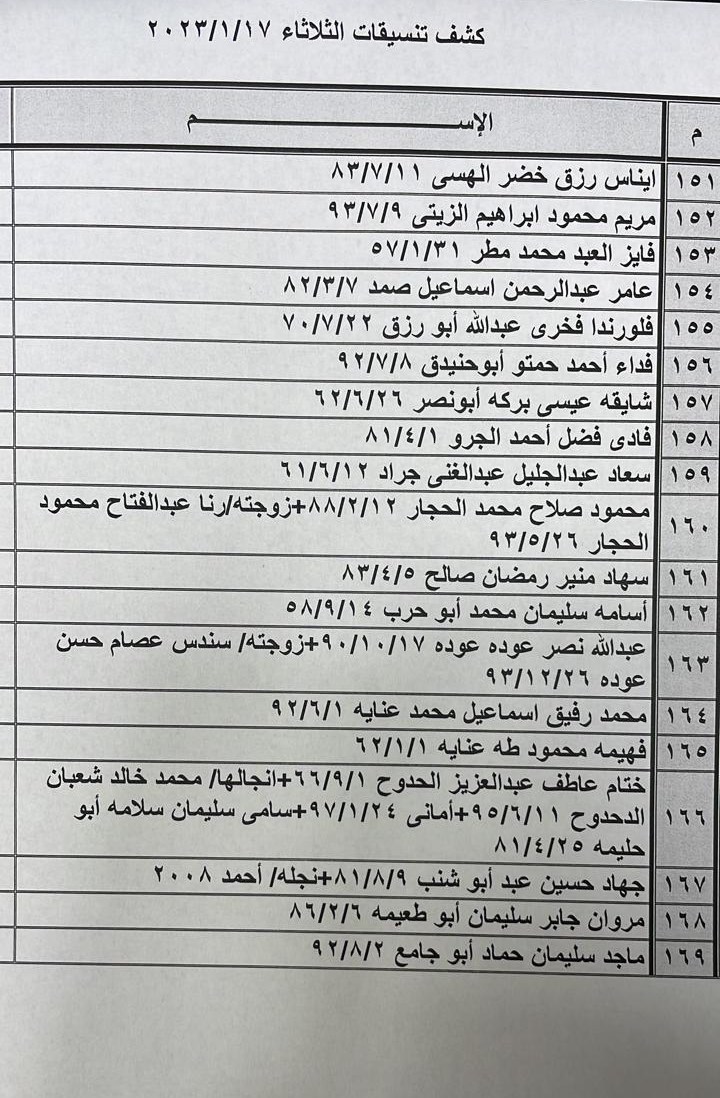 كشف تنسيقات الثلاثاء ٢٠٢٣/١/١٧
م الإســـــــــــــم
١٥١ ايناس رزق خضر الهسى ٨٣/٧/١١
١٥٢ مريم محمود ابراهيم الزيتى ٩٣/٧/٩
١٥٣ فايز العبد محمد مطر ٥٧/١/٣١
١٥٤ عامر عبدالرحمن اسماعيل صمد ٨٢/٣/٧
١٥٥ فلورندا فخرى عبدالله أبو رزق ٧٠/٧/٢٢
١٥٦ فداء أحمد حمتو أبوحنيدق ٩٢/٧/٨
١٥٧ شايقه عيسى بركه أبونصر ٦٢/٦/٢٦
١٥٨ فادى فضل أحمد الجرو ٨١/٤/١
١٥٩ سعاد عبدالجليل عبدالغنى جراد ٦١/٦/١٢
١٦٠ محمود صلاح محمد الحجار ٨٨/٢/١٢+زوجته/رنا عبدالفتاح محمود
الحجار ٩٣/٥/٢٦
١٦١ سهاد منير رمضان صالح ٨٣/٤/٥
١٦٢ أسامه سليمان محمد أبو حرب ٥٨/٩/١٤
١٦٣ عبدالله نصر عوده عوده ٩٠/١٠/١٧+زوجته/ سندس عصام حسن
عوده ٩٣/١٢/٢٦
١٦٤ محمد رفيق اسماعيل محمد عنايه ٩٢/٦/١
١٦٥ فهيمه محمود طه عنايه ٦٢/١/١
١٦٦ ختام عاطف عبدالعزيز الحدوح ٦٦/٩/١+انجالها/ محمد خالد شعبان
الدحدوح ٩٥/٦/١١+أمانى ٩٧/١/٢٤+سامى سليمان سلامه أبو
حليمه ٨١/٤/٢٥
١٦٧ جهاد حسين عبد أبو شنب ٨١/٨/٩+نجله/ أحمد ٢٠٠٨
١٦٨ مروان جابر سليمان أبو طعيمه ٨٦/٢/٦
١٦٩ ماجد سليمان حماد أبو جامع ٩٢/٨/٢